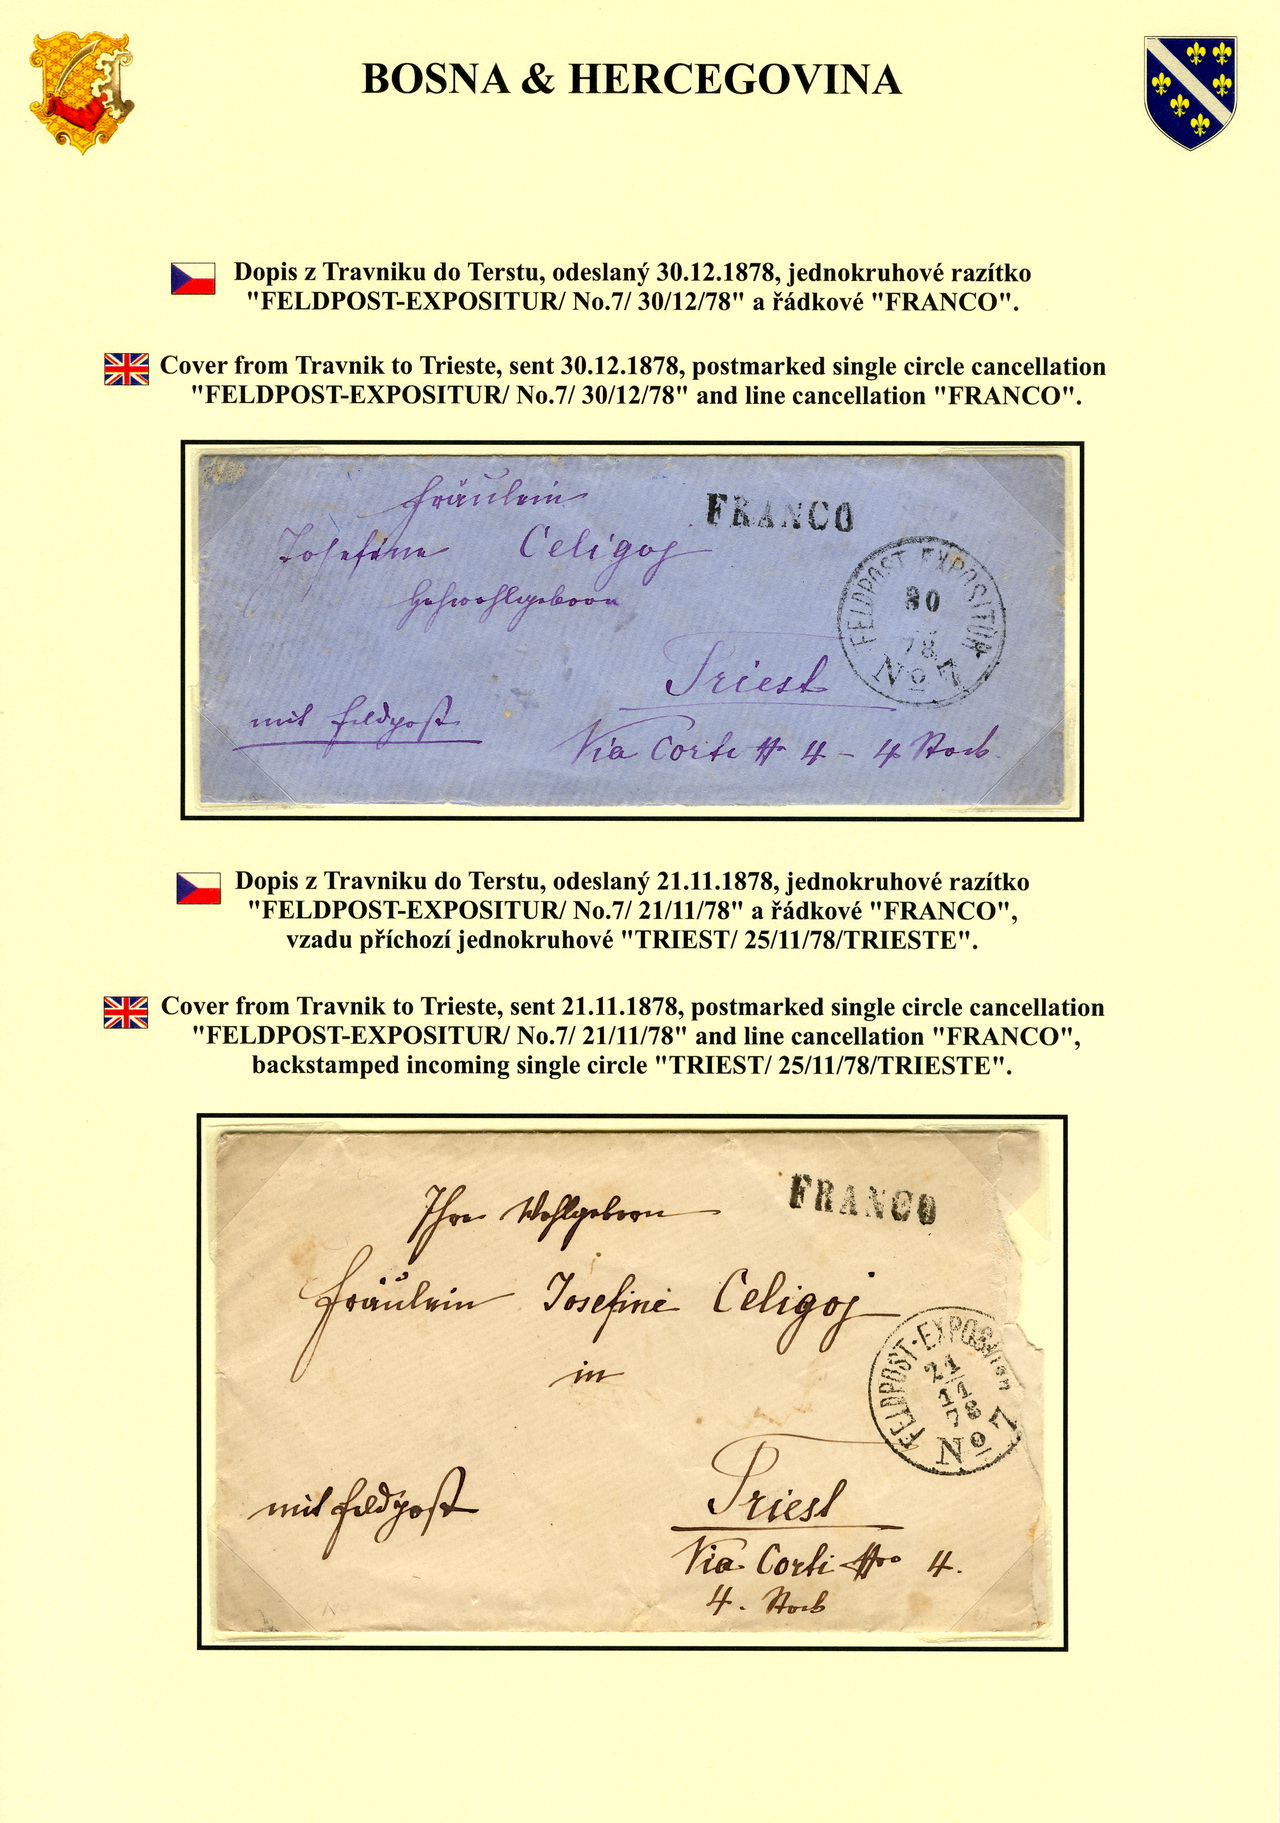 BOSNA & HERCEGOVINA
Dopis z Travniku do Terstu, odeslaný 30.12.1878, jednokruhové razítko
"FELDPOST-EXPOSITUR/ No.7/ 30/12/78" a řádkové "FRANCO".
Cover from Travnik to Trieste, sent 30.12.1878, postmarked single circle cancellation
"FELDPOST-EXPOSITUR/ No.7/ 30/12/78" and line cancellation "FRANCO".
Fräulein
FRANCO
Josefine Celigoj
FELDPOST EXPOSITUR
30
78
No 7
Triest
mit Feldpost
Via Corti No 4 - 4 Stock
Dopis z Travniku do Terstu, odeslaný 21.11.1878, jednokruhové razítko
"FELDPOST-EXPOSITUR/ No.7/ 21/11/78" a řádkové "FRANCO",
vzadu příchozí jednokruhové "TRIEST/ 25/11/78/TRIESTE".
Cover from Travnik to Trieste, sent 21.11.1878, postmarked single circle cancellation
"FELDPOST-EXPOSITUR/ No.7/ 21/11/78" and line cancellation "FRANCO",
backstamped incoming single circle "TRIEST/ 25/11/78/TRIESTE".
FRANCO
Ihre Wohlgeboren
Fräulein Josefine Celigoj
in
FELDPOST-EXPOSITUR
21
11
78
No 7
mit Feldpost
Triest
Via Corti Nro 4.
4. Stock